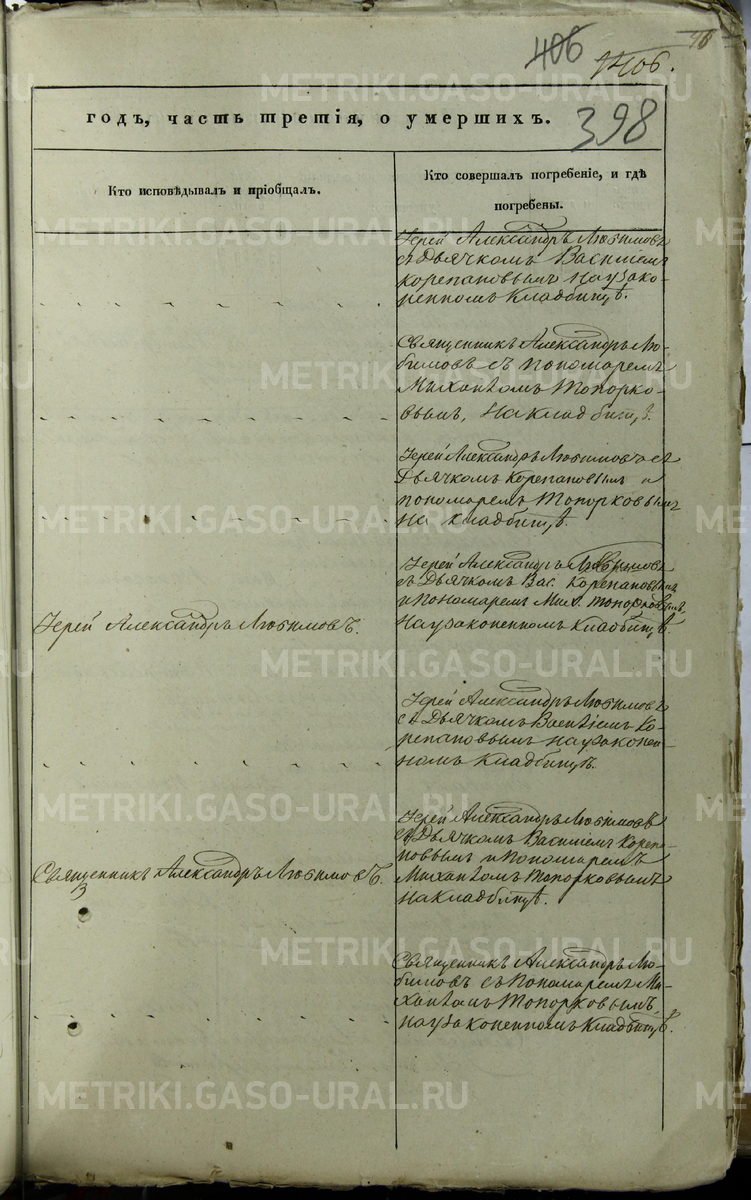 406
1406.
398
годъ, часть третія, о умершихъ.
Кто исповѣдывалъ и пріобщалъ.
Кто совершалъ погребеніе, и гдѣ
погребены.
Іерей Александръ Любимовъ
съ Дьячкомъ Василіемъ
Корепановымъ на узако-
ненномъ Кладбищѣ.
Священникъ Александръ Лю-
бимовъ съ Пономаремъ
Михаиломъ Топорко-
вымъ, на кладбищѣ.
Іерей Александръ Любимовъ съ
Дьячкомъ Корепановымъ и
пономаремъ Топорковымъ
на кладбищѣ.
Іерей Александръ Любимовъ
съ Дьячкомъ Вас. Корепановымъ
и Пономаремъ Мих. Топорковымъ
на узаконенномъ Кладбищѣ.
Іерей Александръ Любимовъ.
Іерей Александръ Любимовъ
съ Дьячкомъ Василіемъ Ко-
репановымъ на узаконен-
номъ Кладбищѣ.
Іерей Александръ Любимовъ
съ Дьячкомъ Василіемъ Корепа-
новымъ и Пономаремъ
Михаиломъ Топорковымъ
на Кладбищѣ.
Священникъ Александръ Любимовъ.
Священникъ Александръ Лю-
бимовъ съ Пономаремъ Ми-
хаиломъ Топорковымъ,
на узаконенномъ Кладбищѣ.
METRIKI.GASO-URAL.RU